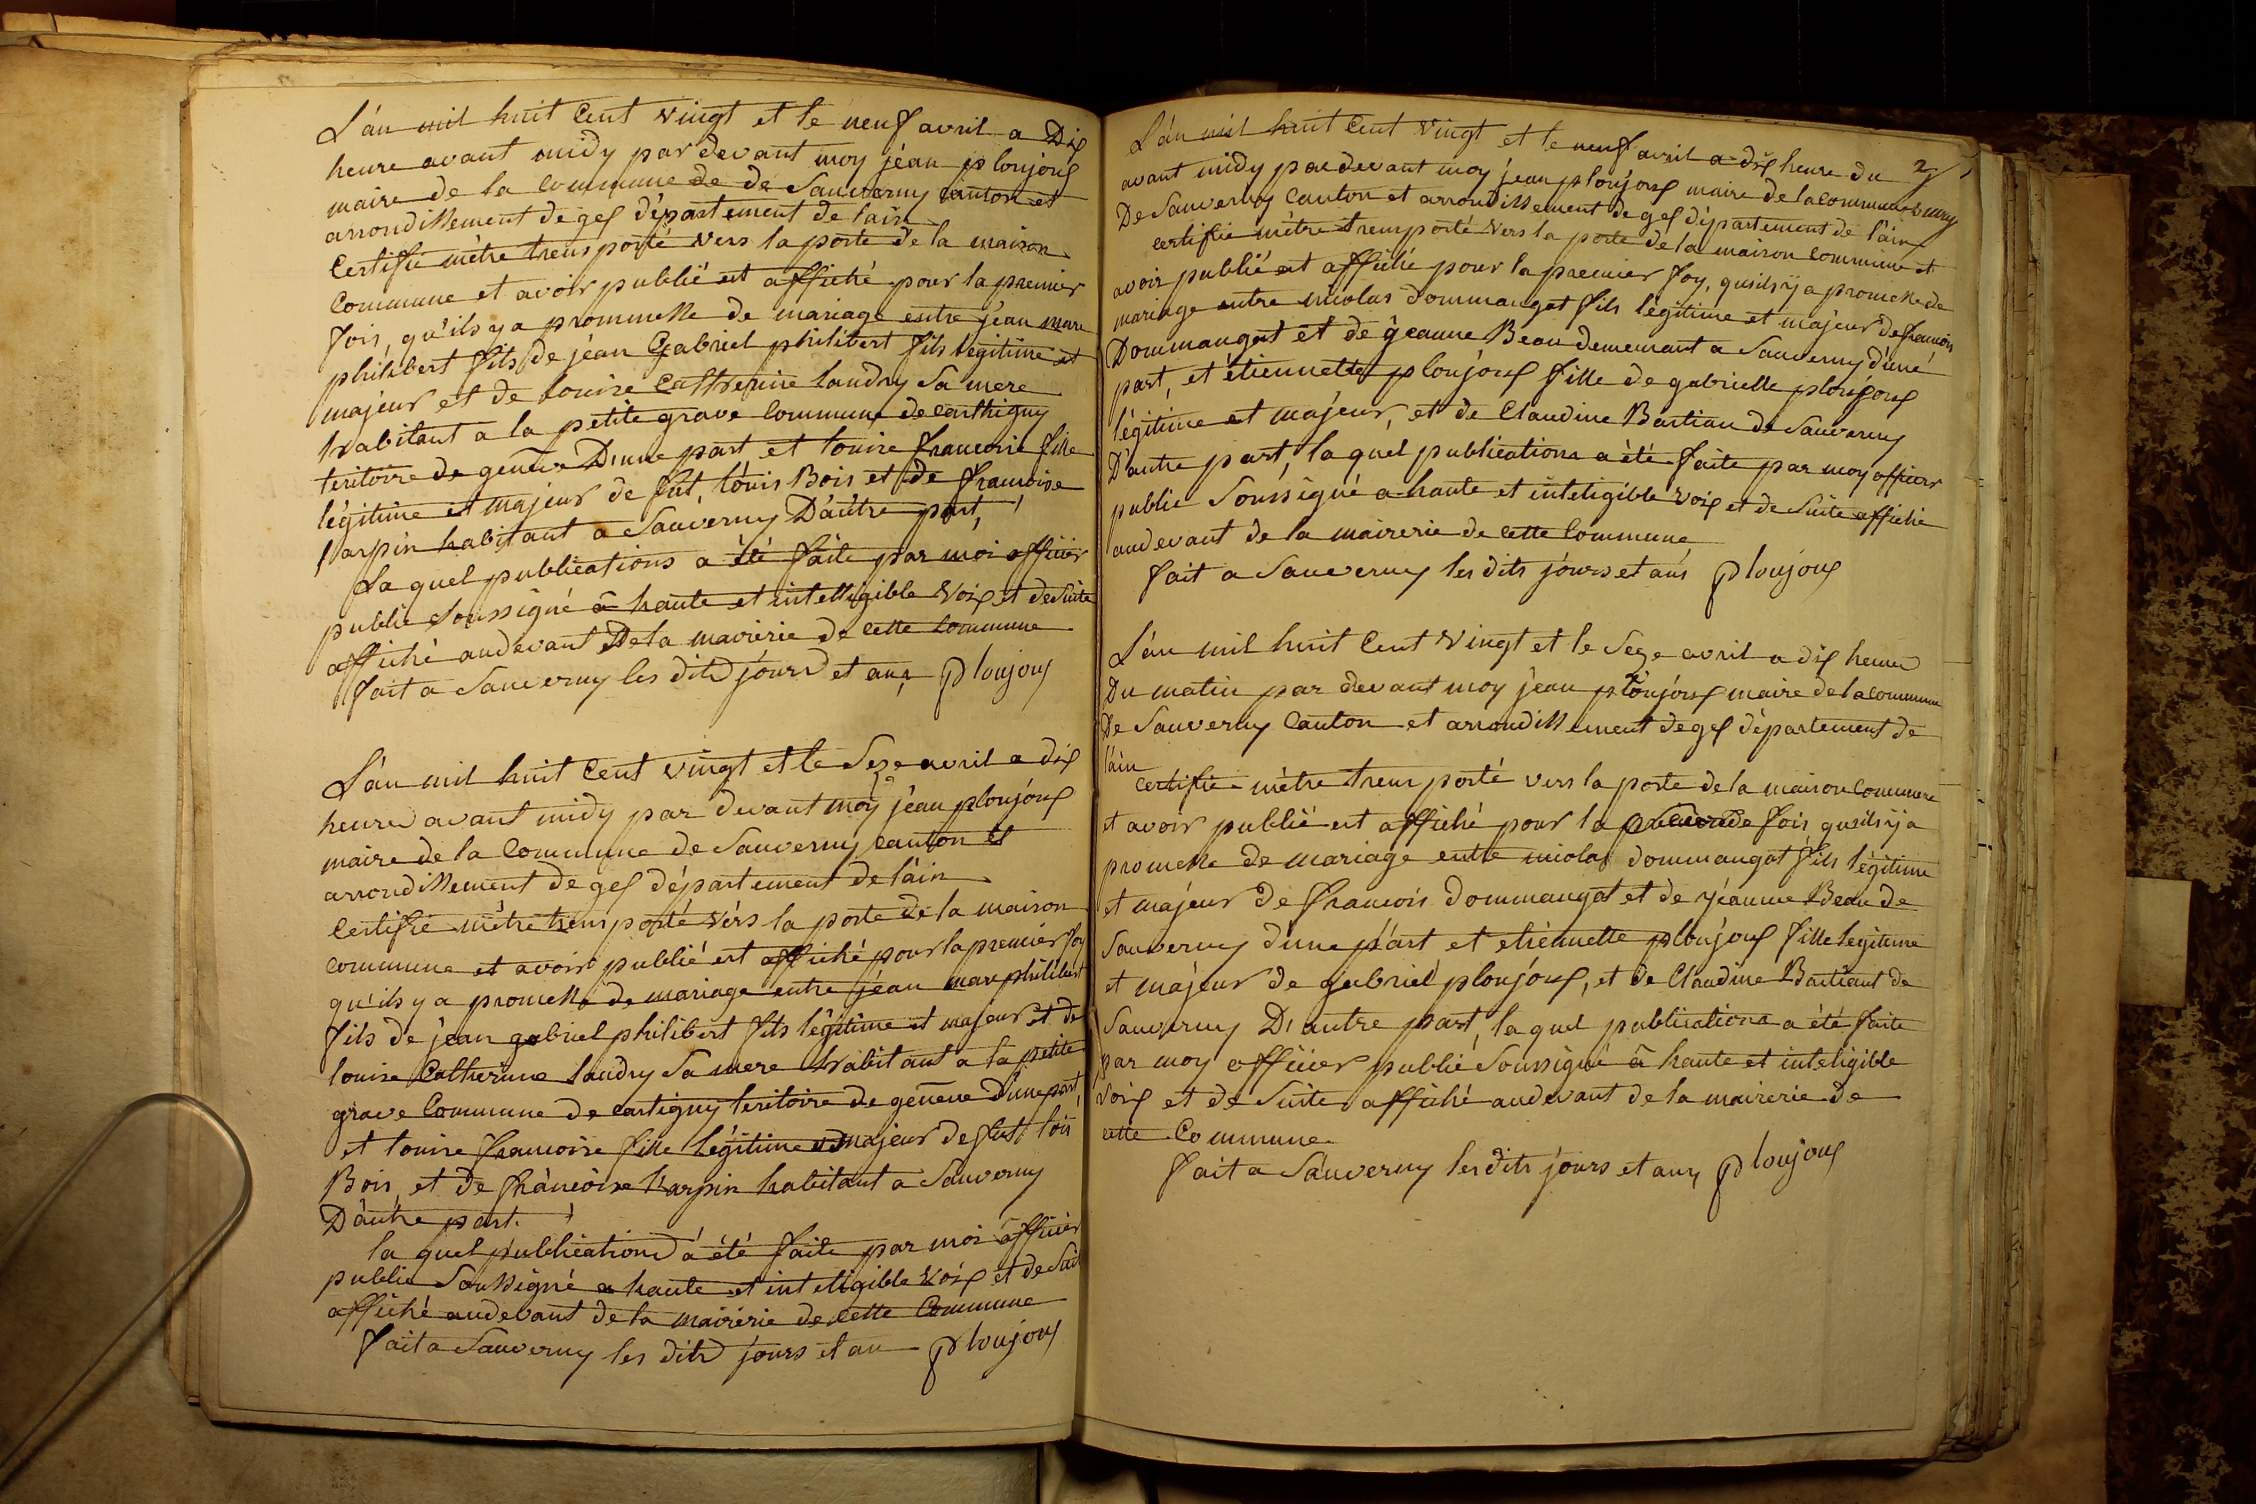 L'an mil huit Cent vingt et le neuf avril a Dix
heure avant midy par devant moy jéan ploujoux
maire de la commune de de Sauverny canton et
arrondissement de gex département de lain
Certifie mètre trensporté vers la porte de la maison
Commune et avoir publié et affiché pour la premier
fois, qu'ils y a prommesse de mariage entre jéan marc
philibert fils de jéan Gabriel philibert fils légitime et
majeur et de louise Catherine landry Sa mere
habitant a la petite grave Commune de carthigny
teritoire de genève D'une part et louise francoise fille
légitime et majeur de fut, lóuis Bois et de francoise
harpin habitant a Sauverny D'aútre part,
La quel publications a été faite par moi officier
public Soussigné a haute et intelligible voix et de Suite
affiché audevant De la mairerie de cette commune
fait a Sauverny les dits jours et an, Ploujoux
L'an mil huit Cent vingt et le Seze avril a dix
heures avant midy par devant moy jéan ploujoux
maire de la Commune de Sauverny canton et
arrondissement de gex département de láin
Certifie mètre trensporté vers la porte de la maison
commune et avoir publié et affiché pour la premier foy
qu'ils y a promesse de mariage entre jéan marc philibert
fils de jéan gabriel philibert fils légitime et majeur et de
louise Catherine landry Sa mere habitant a la petite
grave Commune de cartigny teritoire de genève D'une part,
et louise francoise fille légitime et majeur de fut, lois
Bois, et de fráncoise harpin habitant a Sauverny
D'aútre part.
la quel publications a été faite par moi officier
public Soussigné a haute et inteligible voix et de Suit
affiché audevant de la mairérie de cette Commune
fait a Sauverny les dits jours et an Ploujoux
2
L'án mil huit Cent vingt et le neuf avril a dix heure du
avant midy par devant moy jéan ploujoux maire de la commune
De Sauverny Canton et arrondissement de gex département de l'ain
certifie mètre trensporté vers la porte de la maison commune et
avoir publié et affiché pour la premier foy, qu'ils y a promesse de
mariage entre nicolas dommangot fils légitime et majeur de francois
Dommangot et de jeanne Beau demeurant a Sauverny d'uné
part, et étiennette ploujoux fille de gabrielle ploujoux
légitime et majeur, et de Claudine Bastian de Sauverny
D'autre part, la quel publications a été faite par moy officier
public Soussigné a haute et inteligible voix et de Suite affiché
audevant de la mairerie de cette Commune
fait a Sauverny les dits jóurs et ans Ploujoux
L'án mil huit Cent vingt et le Seze avril a dix heures
Du matin par devant moy jéan ploujoux maire de la commune
De Sauverny Canton et arrondissement de gex département de
láin
certifie mètre trensporté vers la porte de la maison commune
et avoir publié et affiché pour la Seconde fois, qu'ils y a
promesse de mariage entre nicolas dommangot fils légitime
et majeur de francois dommangot et de jéanne Beau de
Sauverny d'une part et etiénnette ploujoux fille legitime
et majeur de gabriel ploujoux, et de Claudine Bastiant de
Sauverny D'autre part, la quel publications a été faite
par moy officier public Soussigné a haute et inteligible
voix et de Suite affiché audevant de la mairerie de
cette Commune.
fait a Sauverny les dits jours et an, Ploujoux